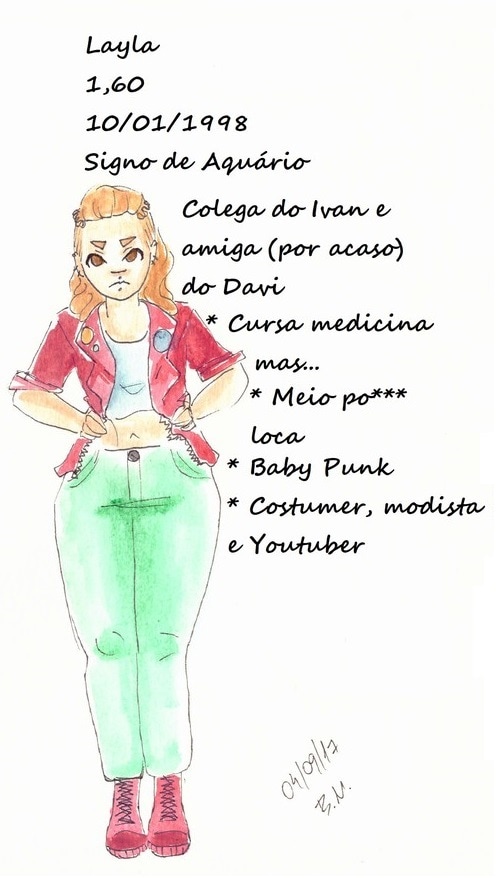 Layla
1,60
10/01/1998
Signo de Aquário
Colega do Ivan e
amiga (por acaso)
do Davi
* Cursa medicina
mas...
* Meio po***
loca
* Baby Punk
* Costumer, modista
e Youtuber
04/09/17
B.M.